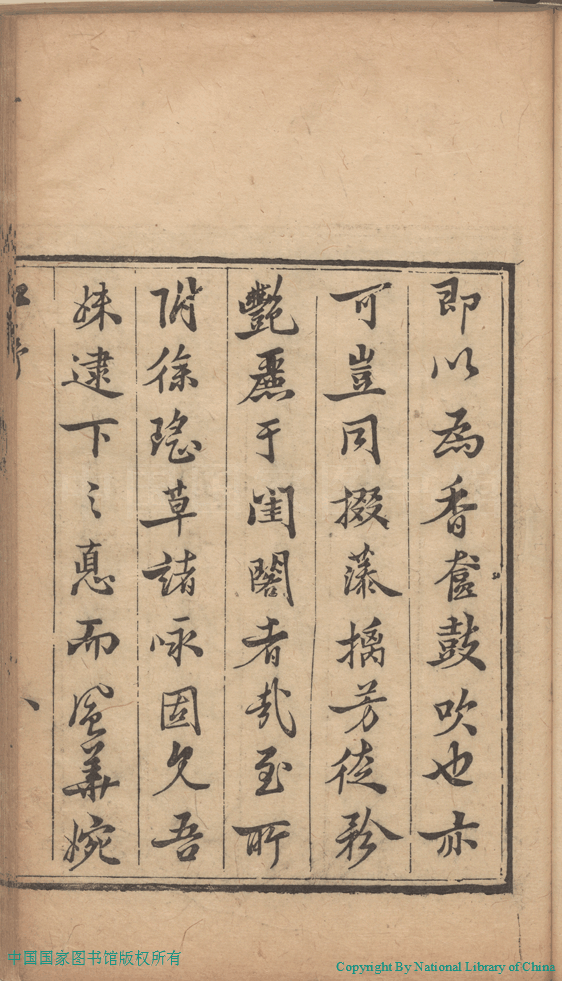 即以為香奩鼓吹也亦
可豈同掇藻摛芳徒矜
豔麗于閨閣者哉至所
附徐瑤草諸咏固欠吾
妹逮下之惪而風華婉
中国国家图书馆版权所有
Copyright By National Library of China